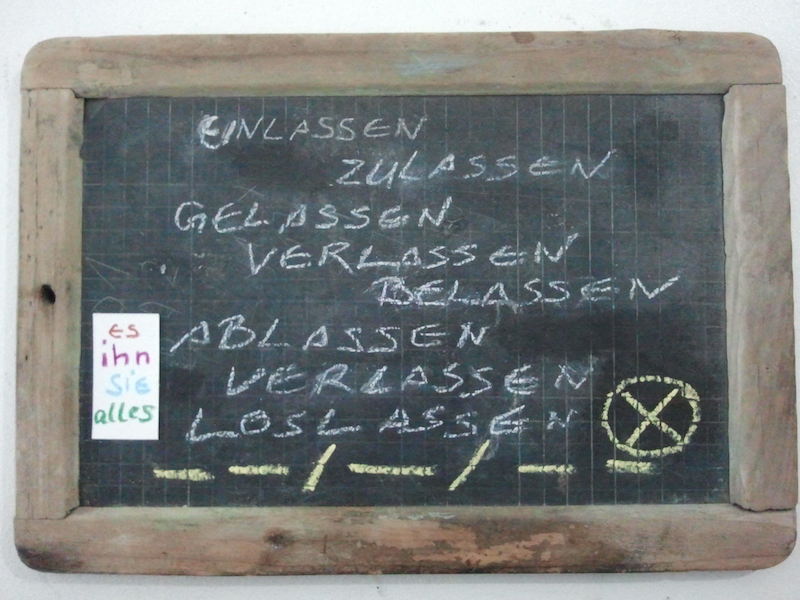 EINLASSEN
ZULASSEN
GELASSEN
VERLASSEN
BELASSEN
ABLASSEN
VERLASSEN
LOSLASSEN
es
ihn
sie
alles